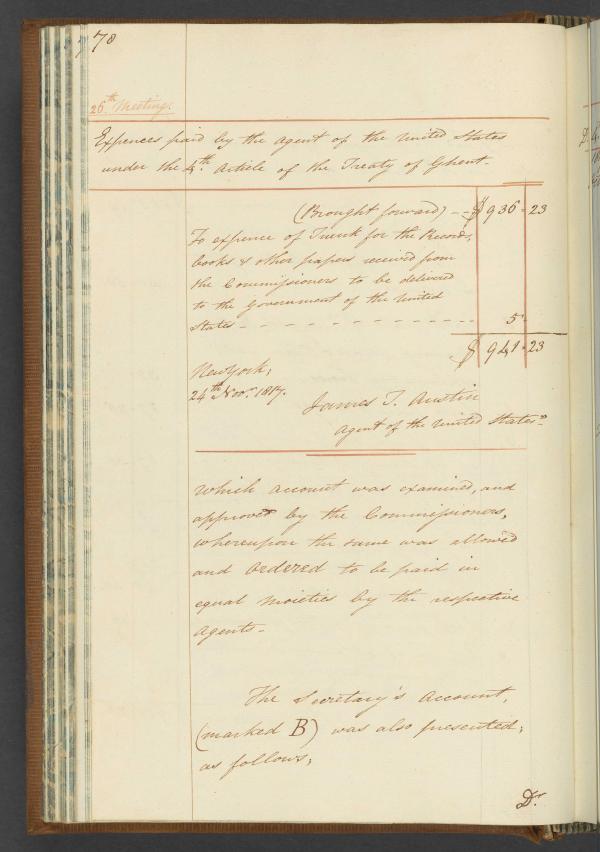 78
26th Meeting.
Expences paid by the agent of the United States
under the 4th Article of the Treaty of Ghent.
(Brought forward) - - $ 936 - 23
To expence of Trunk for the Record,
books & other papers received from
the Commissioners to be delivered
to the Government of the United
States - - - - - - - - - - 5 -
$ 941 - 23
New York,
24th Novr. 1817.
James T. Austin
Agent of the United States"
Which account was examined, and
approved by the Commissioners,
whereupon the same was allowed
and Ordered to be paid in
equal Moieties by the respective
Agents -
The Secretary's Account,
(marked B) was also presented,
as follows,
Dr